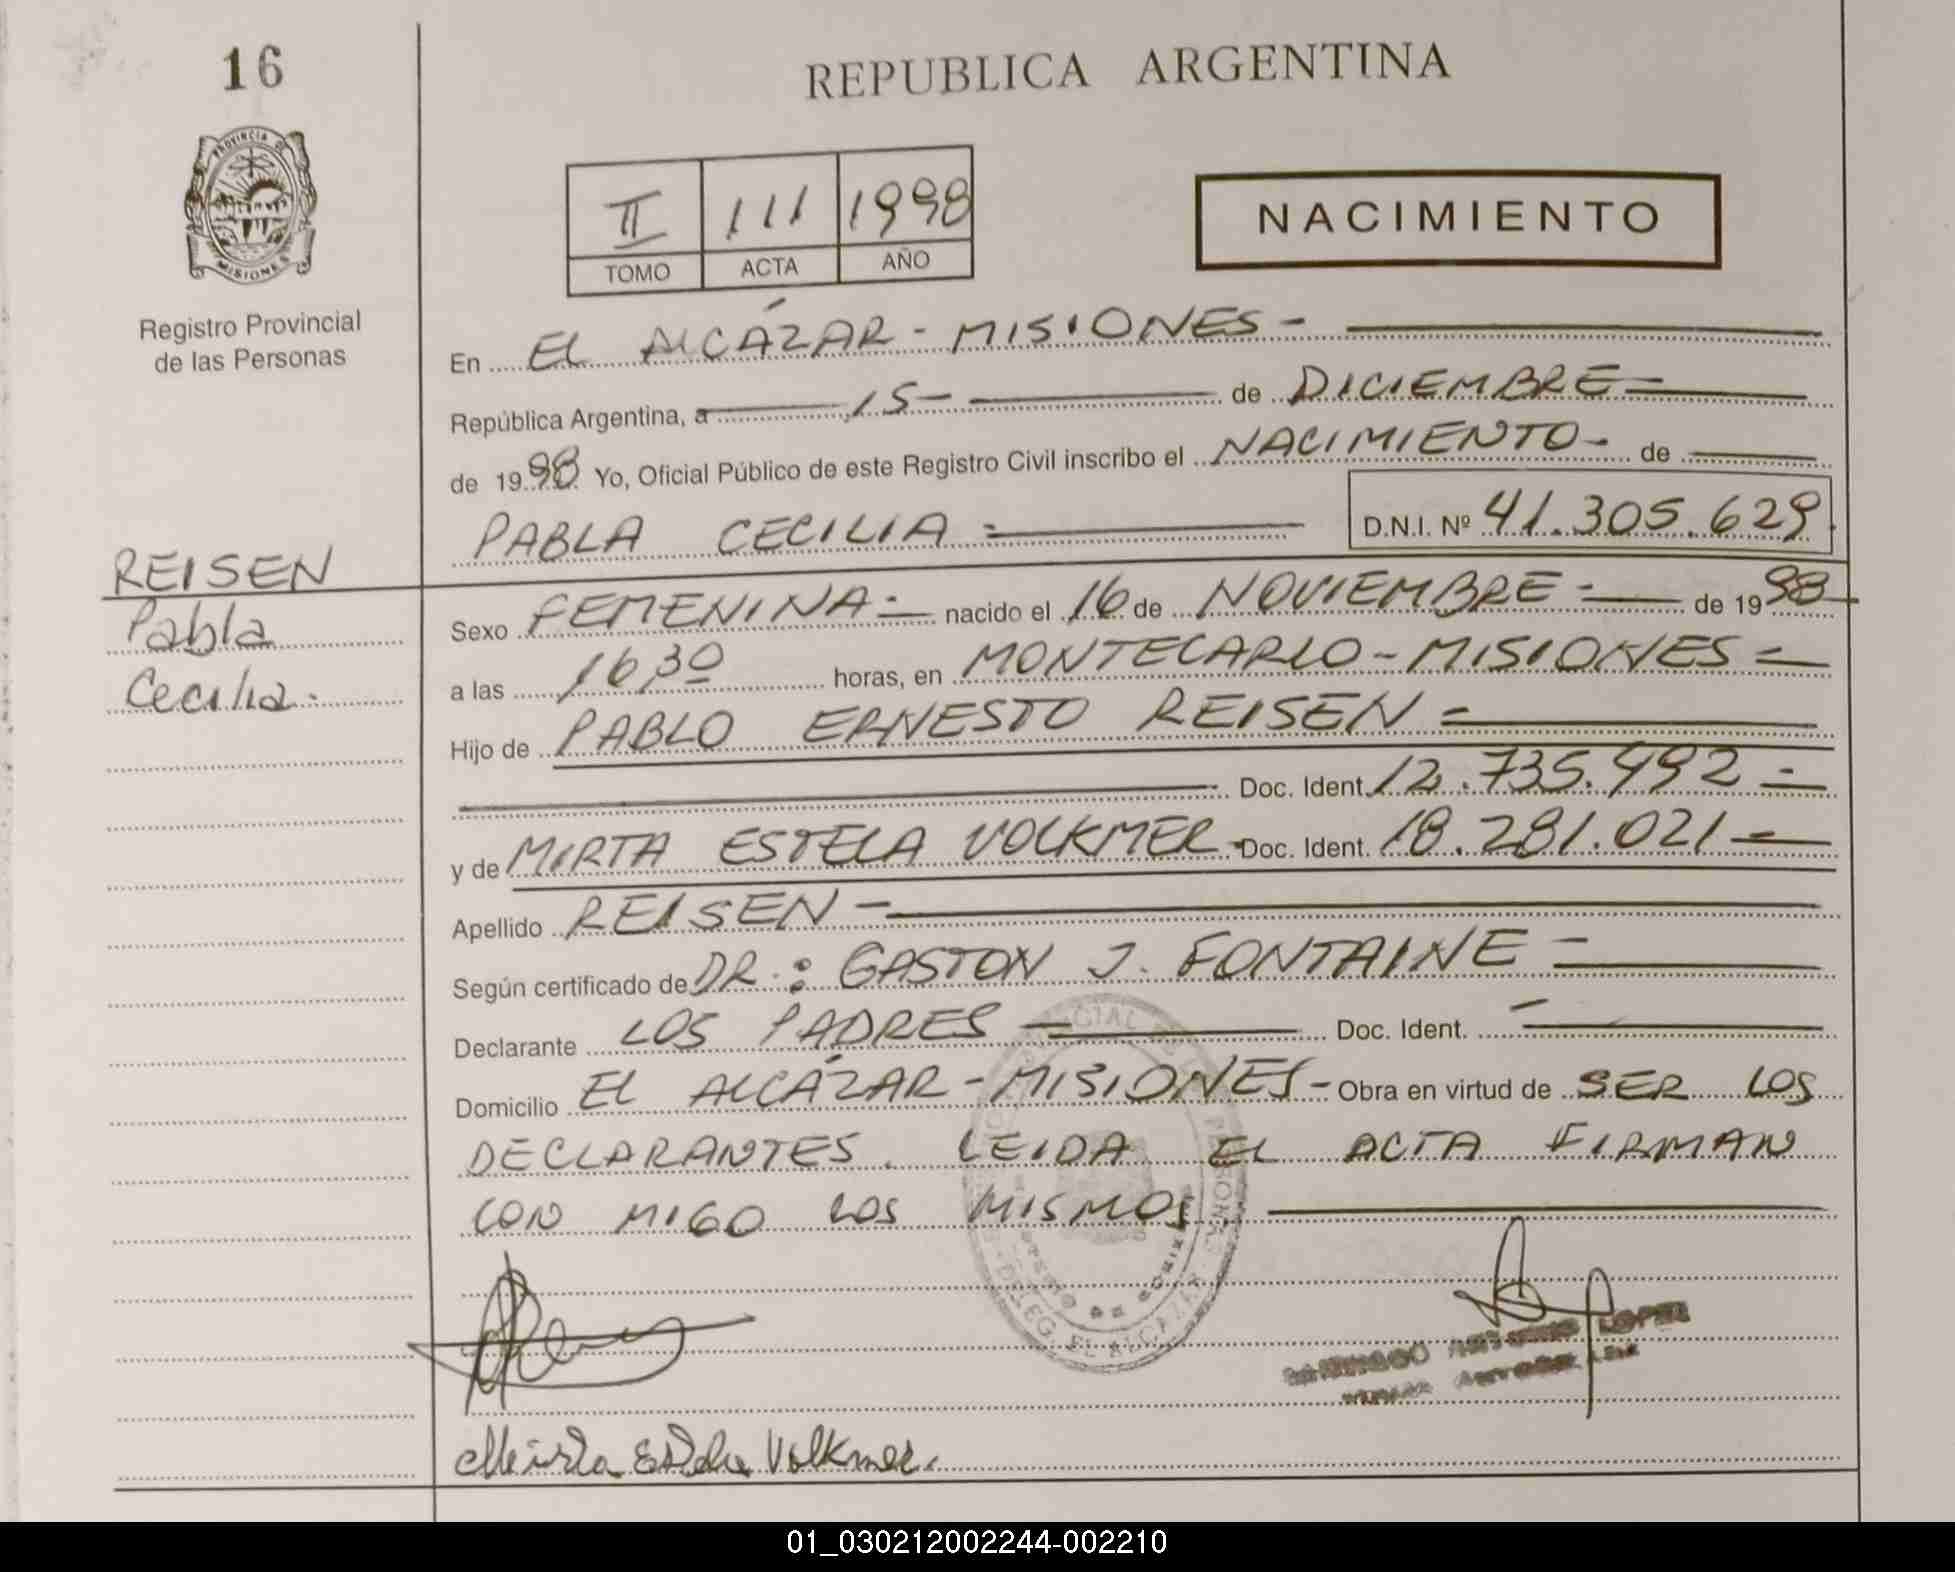 16
REPUBLICA ARGENTINA
PROVINCIA DE
MISIONES
Registro Provincial
de las Personas
II 111 1998
TOMO ACTA AÑO
NACIMIENTO
En EL ALCÁZAR - MISIONES -
República Argentina, a 15 - de DICIEMBRE -
de 1998 Yo, Oficial Público de este Registro Civil inscribo el NACIMIENTO - de
PABLA CECILIA = D.N.I. Nº 41.305.629
REISEN
Pabla
Cecilia.
Sexo FEMENINA = nacido el 16 de NOVIEMBRE = de 1998
a las 16,30 horas, en MONTECARLO - MISIONES =
Hijo de PABLO ERNESTO REISEN =
Doc. Ident. 12.735.492 =
y de MIRTA ESTELA VOLKMER - Doc. Ident. 18.281.021 =
Apellido REISEN -
Según certificado de DR.: GASTON J. FONTAINE =
Declarante LOS PADRES = Doc. Ident. -
Domicilio EL ALCÁZAR - MISIONES - Obra en virtud de SER LOS
DECLARANTES. LEIDA EL ACTA FIRMAN
CON MIGO LOS MISMOS.
DELEG. EL ALCAZAR
LOPEZ
Mirta Estela Volkmer.
01_030212002244-002210